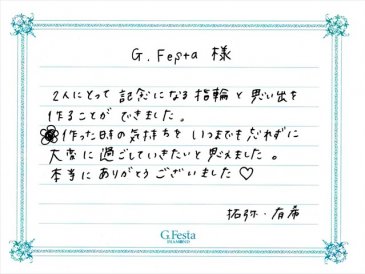 G.Festa 様
2人にとって 記念になる指輪と思い出を
作ることが できました。
作った時の気持ちを いつまでも忘れずに
大事に過ごしていきたいと思えました。
本当にありがとうございました♡
拓弥・有希
G.Festa
DIAMOND